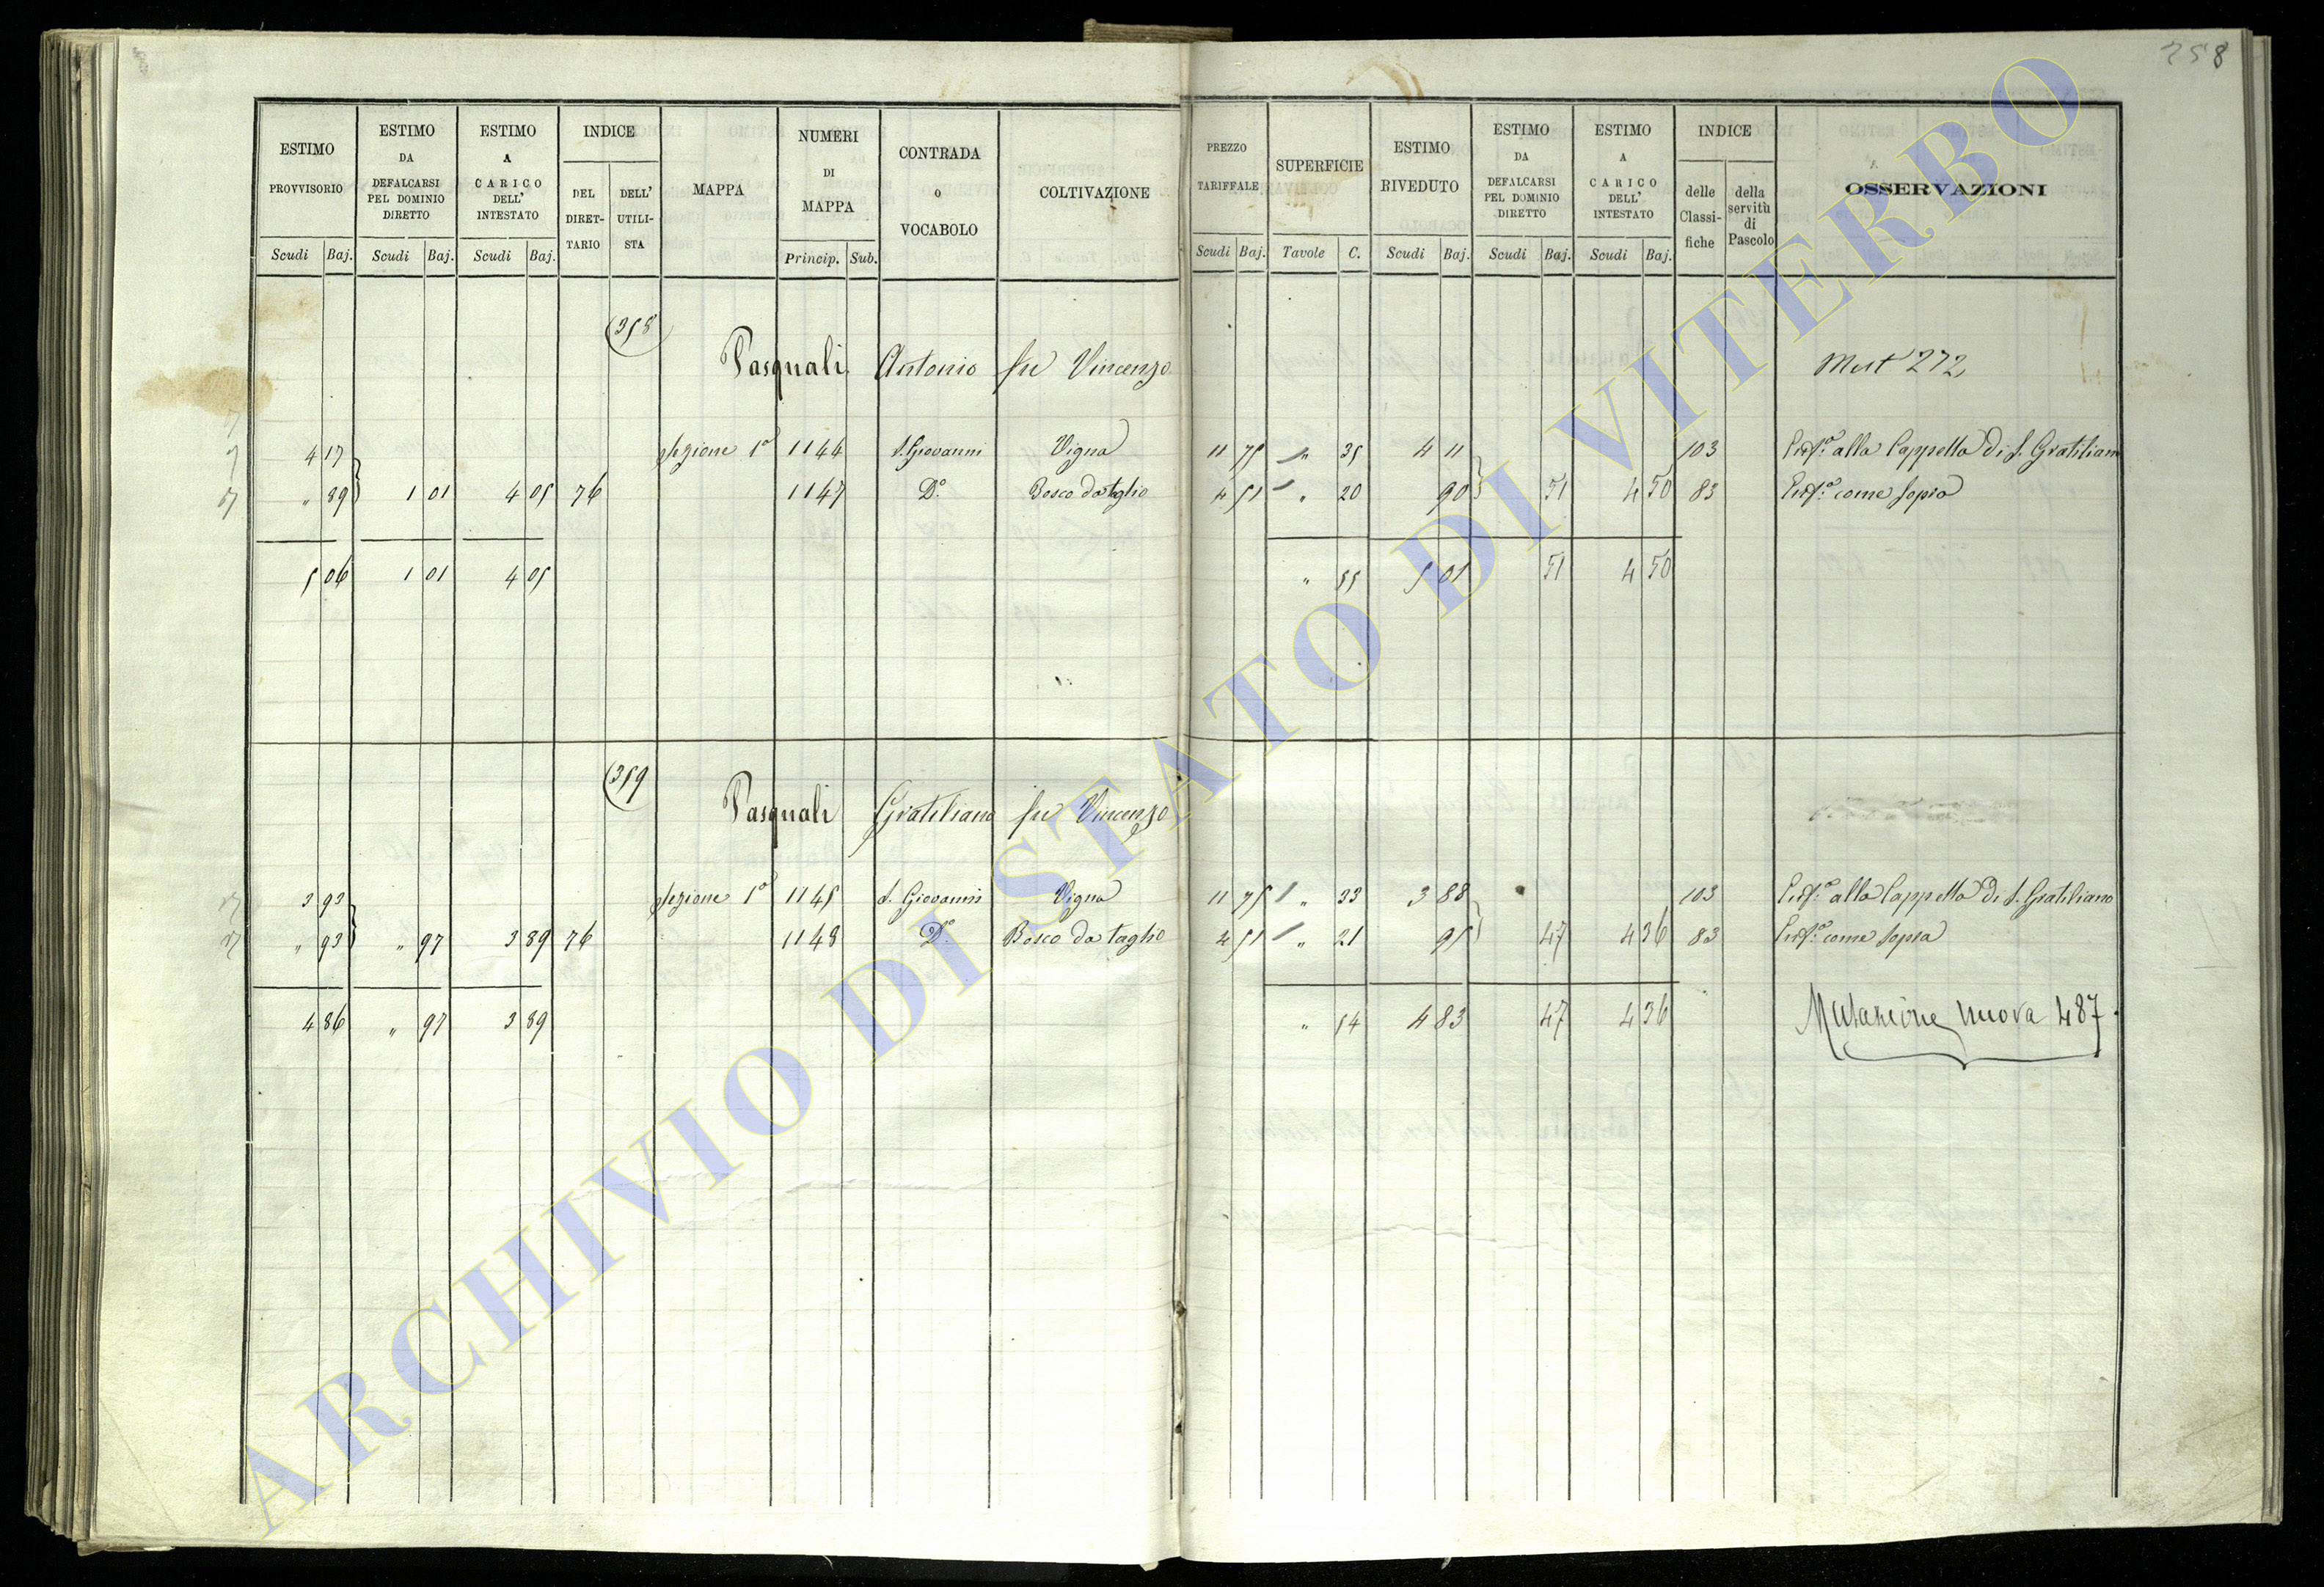 258
ESTIMO PROVVISORIO Scudi Baj.
ESTIMO DA DEFALCARSI PEL DOMINIO DIRETTO Scudi Baj.
ESTIMO A CARICO DELL' INTESTATO Scudi Baj.
INDICE DEL DIRET-TARIO DELL' UTILI-STA
MAPPA
NUMERI DI MAPPA Princip. Sub.
CONTRADA o VOCABOLO
COLTIVAZIONE
PREZZO TARIFFALE Scudi Baj.
SUPERFICIE Tavole C.
ESTIMO RIVEDUTO Scudi Baj.
ESTIMO DA DEFALCARSI PEL DOMINIO DIRETTO Scudi Baj.
ESTIMO A CARICO DELL' INTESTATO Scudi Baj.
INDICE delle Classi-fiche della servitù di Pascolo
OSSERVAZIONI
358
Pasquali Antonio fu Vincenzo
Mut 272
4 17 Sezione 1ª 1144 S. Giovanni Vigna 11 75 " 35 4 11 103 alla Cappella di S. Gratiliano
" 89 1 01 4 05 76 1147 Dº Bosco da taglio 4 51 " 20 90 51 4 50 83 come sopra
5 06 1 01 4 05 " 55 5 01 51 4 50
359
Pasquali Gratiliano fu Vincenzo
3 93 Sezione 1ª 1145 S. Giovanni Vigna 11 75 " 33 3 88 103 alla Cappella di S. Gratiliano
" 93 " 97 3 89 76 1148 Dº Bosco da taglio 4 51 " 21 95 47 4 36 83 come sopra
4 86 " 97 3 89 " 54 4 83 47 4 36
Mutazione nuova 487.
ARCHIVIO DI STATO DI VITERBO